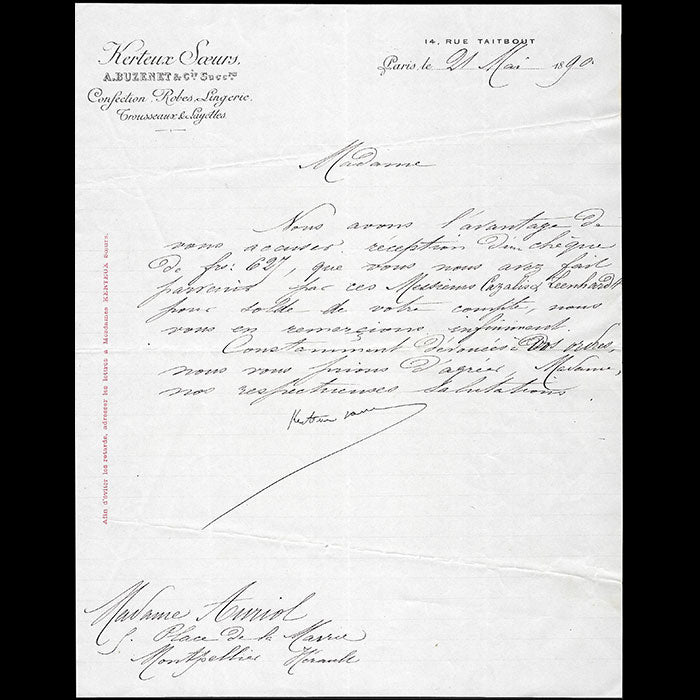 Kerteux Sœurs,
A. BUZENET & Cie Succrs
Confection, Robes, Lingerie,
Trousseaux & Layettes
14, RUE TAITBOUT
Paris, le 21 Mai 1890.
Madame
Nous avons l'avantage de
vous accuser reception d'un chèque
de frs: 627, que vous nous avez fait
parvenir par ces Messieurs Cazalis & Leenhardt
pour solde de votre compte, nous
vous en remerçions infiniment.
Constamment dévouées à vos ordres,
nous vous prions d'agréer, Madame,
nos respectueuses salutations
Kerteux sœurs
Afin d'éviter les retards, adresser les lettres à Mesdames KERTEUX Sœurs.
Madame Auriol
5. Place de la Mairie
Montpellier Hérault